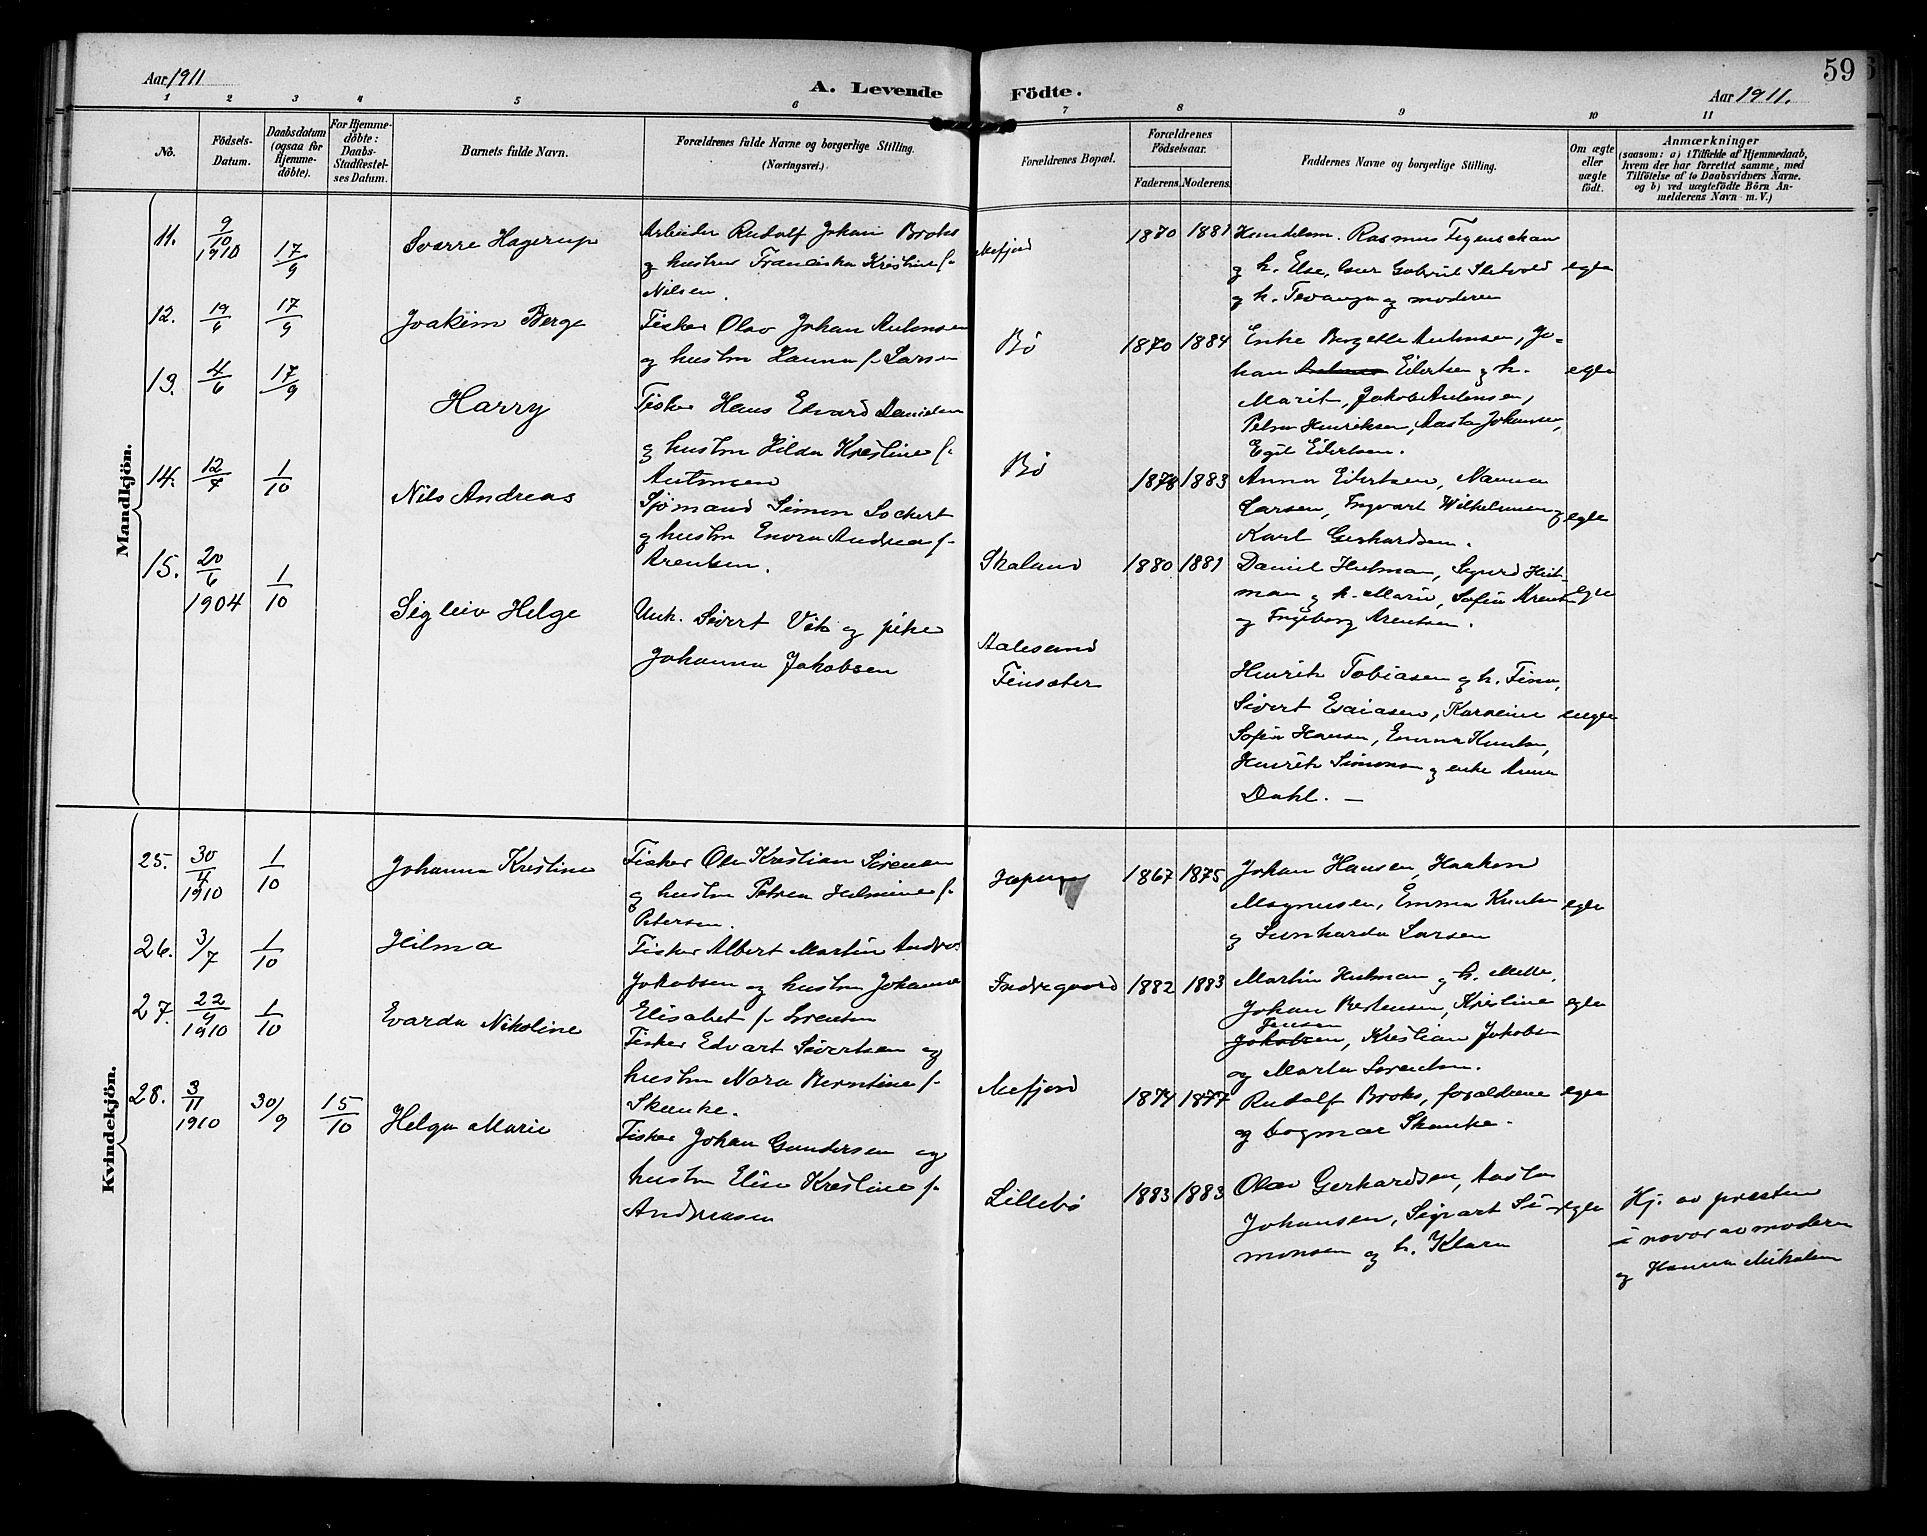 59
Aar 1911
A. Levende Födte.
Aar 1911.
1 2 3 4 5 6 7 8 9 10 11
No.
Födsels-
Datum.
Daabsdatum
(ogsaa for
Hjemme-
döbte).
For Hjemme-
döbte:
Daabs-
Stadfæstel-
ses Datum.
Barnets fulde Navn.
Forældrenes fulde Navne og borgerlige Stilling.
(Næringsvei.)
Forældrenes Bopæl.
Forældrenes
Födselsaar.
Faderens. Moderens.
Faddernes Navne og borgerlige Stilling.
Om ægte
eller
uægte
födt.
Anmærkninger
(saasom: a) i Tilfælde af Hjemmedaab,
hvem der har forrettet samme, med
Tilföielse af to Daabsvidners Navne.
og b) ved uægtefödte Börn An-
melderens Navn m. V.)
Mandkjön.
11.
9/10
1910
17/9
Sverre Hagerup
Arbeider Rudolf Johan Broks
og hustru Franciska Kristine f.
Nilsen.
Mefjord
1870 1881
Handelsm. Rasmus
og h. Else, Gabriel
og h. og moderen
egte
12.
19/6
17/9
Joakim Berge
Fisker Olav Johan Antonsen
og hustru Hanna f. Larsen
Bö
1870 1884
Enke Bergette Antonsen, Jo-
han Eilertsen og h.
Marit, Jakob Antonsen,
Petra Henriksen, Aasta Johansen,
Egil Eilertsen.
egte
13.
4/6
17/9
Harry
Fisker Hans Edvard Danielsen
og hustru Hilda Kristine f.
Antonsen
Bö
1878 1883
Anna Eilertsen, Nanna
Larsen, Ingvart Wilhelmsen og
Karl Gerhardsen.
egte
14.
12/7
1/10
Nils Andreas
Sjömand Simon Lockert
og hustru Enora Andrea f.
Arentsen.
Skaland
1880 1881
Daniel Hutman, Sigurd Hut-
man og h. Marie, Sofie Arents
og Ingeborg Arentsen.
egte
15.
20/6
1904
1/10
Sigleiv Helge
Unk. Sivert Vik og pike
Johanna Jakobsen
Aalesund
Finsæter
Henrik Tobiasen og h. Fina,
Sivert Esaiasen, Karoline
Sofie Hansen, Emma Knutsen,
Henrik Simons og enke Anna
Dahl. —
uegte
Kvindekjön.
25.
30/4
1910
1/10
Johanna Kristine
Fisker Ole Kristian Sörensen
og hustru Petra Helmine f.
Petersen.
1867 1875
Johan Hansen, Haakon
Magnussen, Emma Knutsen
og Leonharda Larsen
egte
26.
3/7
1/10
Hilma
Fisker Albert Martin Andr.
Jakobsen og hustru Johanna
Elisabet f. Lorentsen
Indregaard
1882 1883
Martin Hutman og h. Mette,
Johan Berntsen, Kristine
Jensen
Jakobsen, Kristian Jakobsen
og Marta Lorentsen.
egte
27.
22/9
1910
1/10
Evarda Nikoline
Fisker Edvart Sivertsen og
hustru Nora Berntine f.
Skanke.
Mefjord
1874 1877
Rudolf Broks, forældrene
og Dagmar Skanke.
egte
28.
3/11
1910
30/9
15/10
Helga Marie
Fisker Johan Gundersen og
hustru Elise Kristine f.
Andreasen
Lillebö
1883 1883
Olav Gerhardsen, Aasta
Johansen, Sigvart Si-
monsen og h. Klara
egte
Hj. av presten
i nærvær av moderen
og Hanna Mikalsen